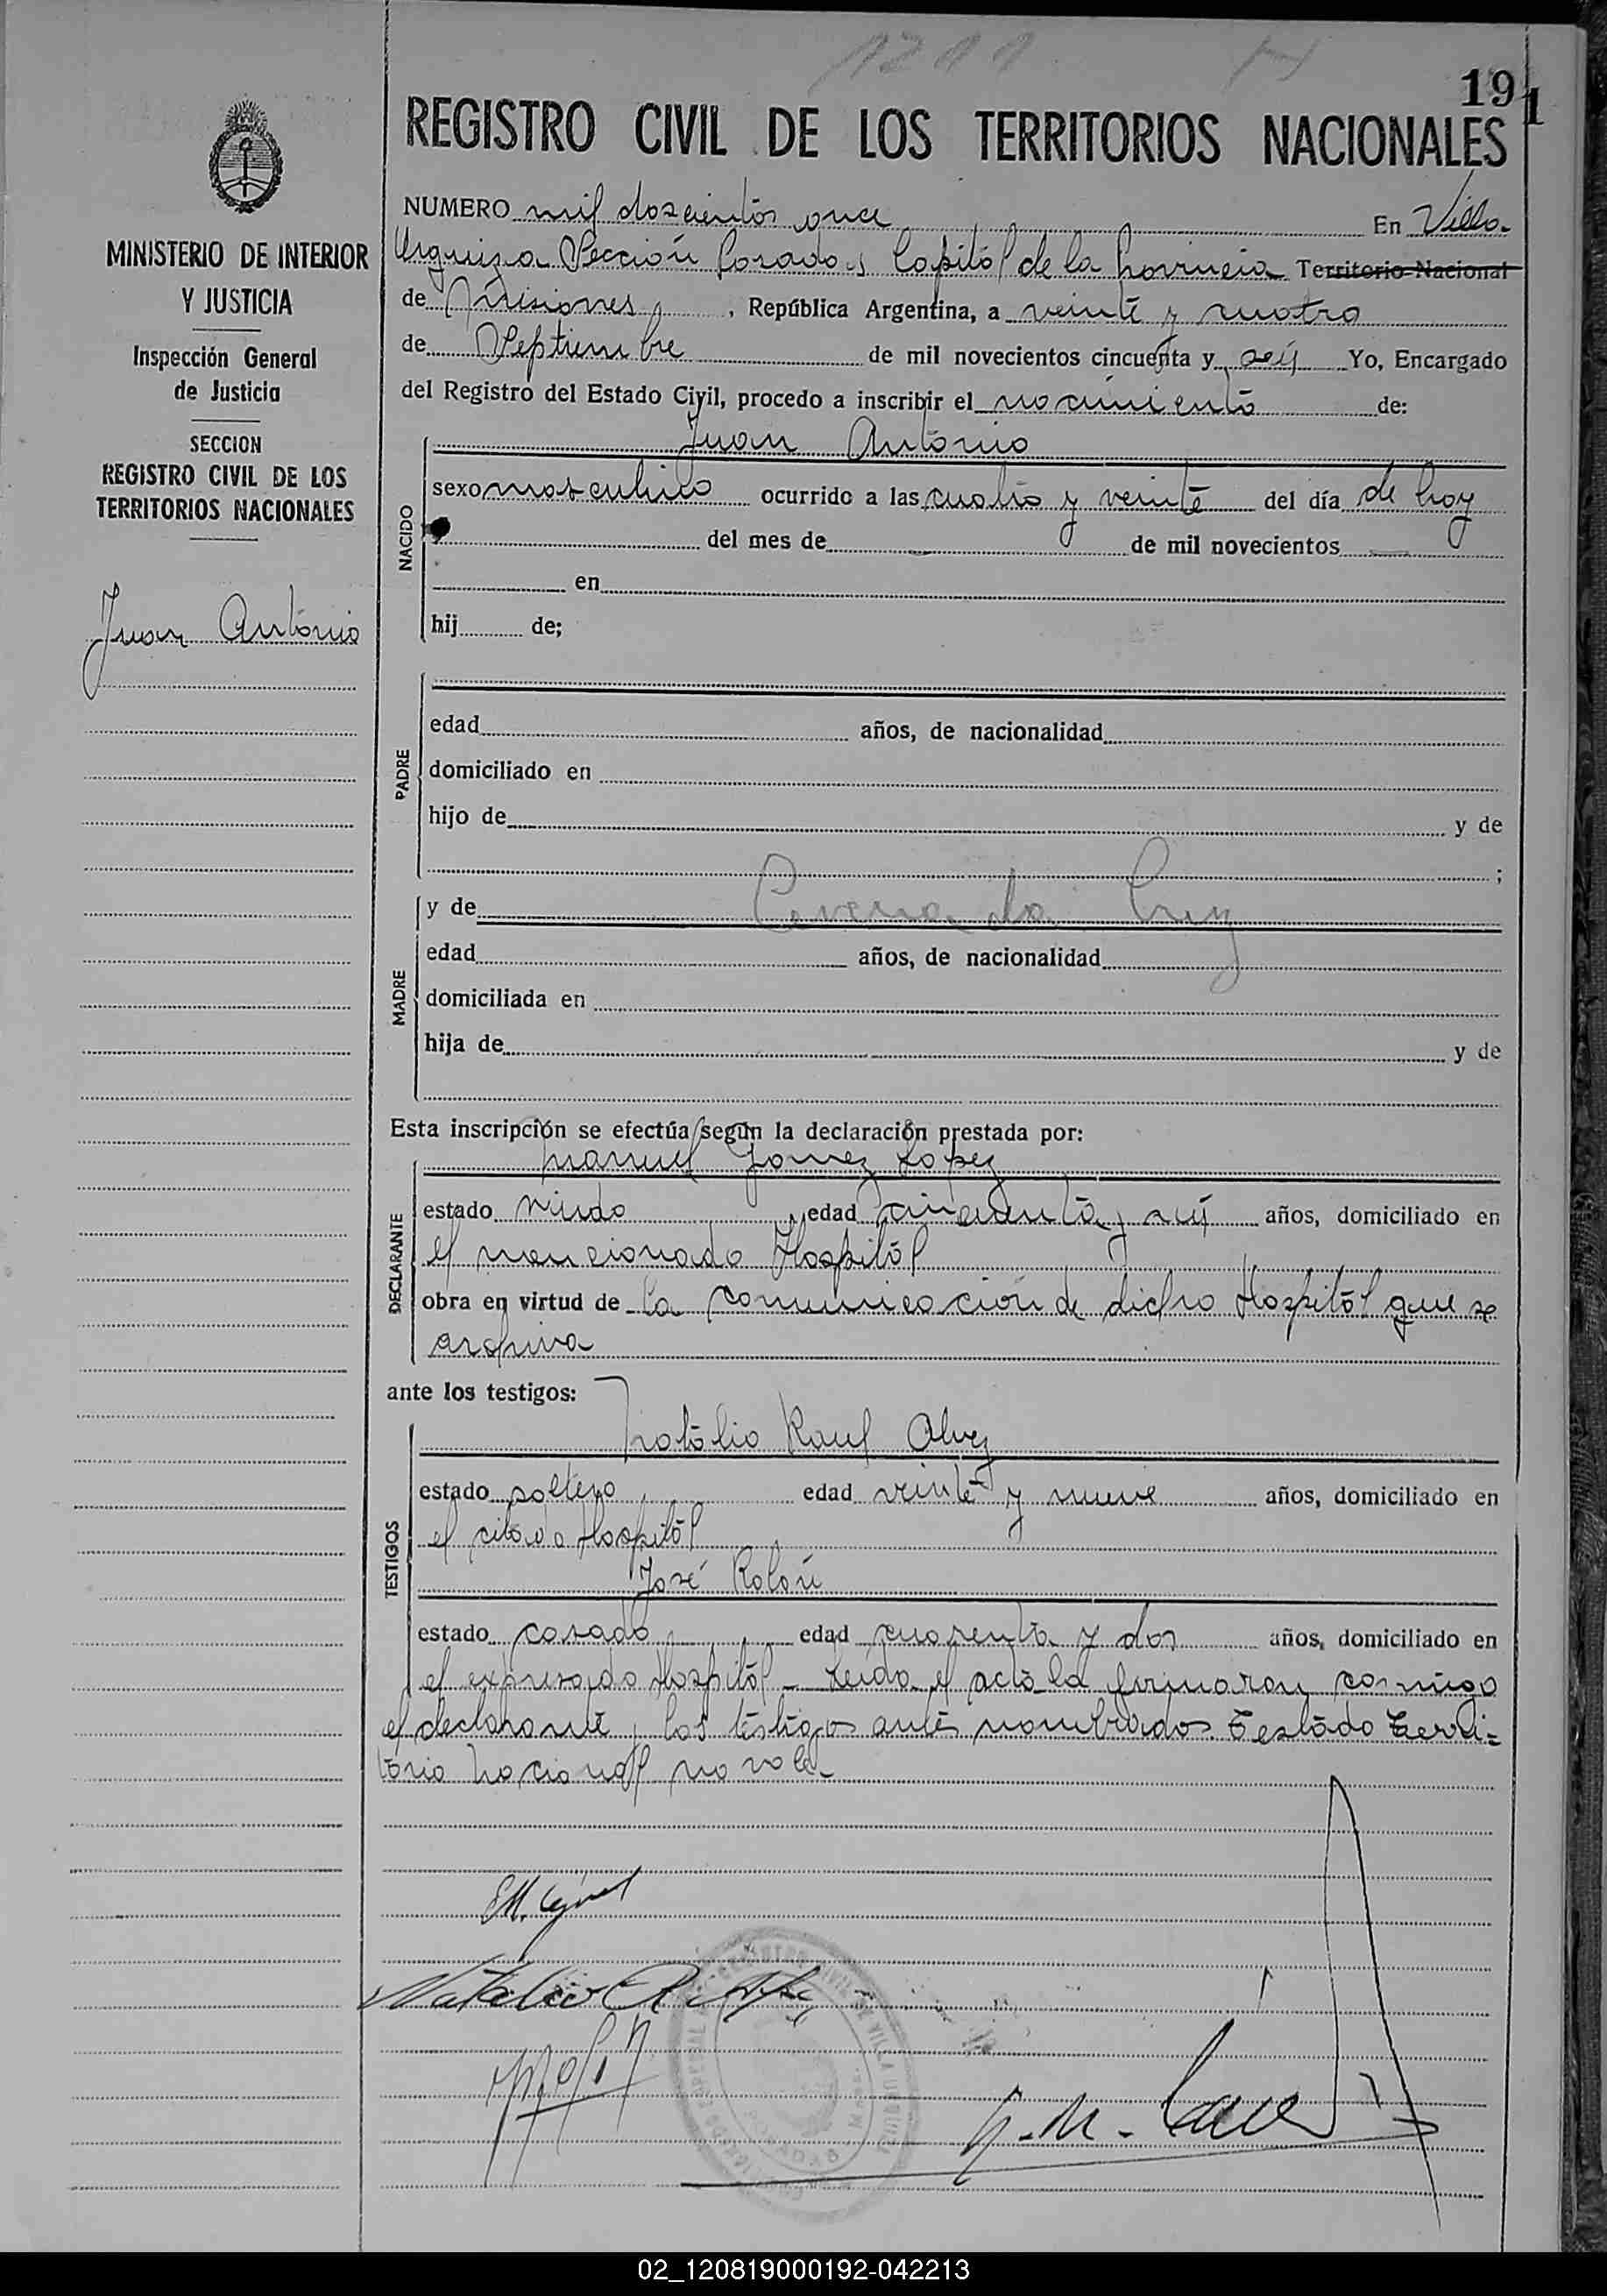 1211
191
REGISTRO CIVIL DE LOS TERRITORIOS NACIONALES
MINISTERIO DE INTERIOR
Y JUSTICIA
Inspección General
de Justicia
SECCION
REGISTRO CIVIL DE LOS
TERRITORIOS NACIONALES
Juan Antonio
NUMERO mil doscientos once En Villa
Urquiza Sección Posadas Capital de la Provincia Territorio Nacional
de Misiones, República Argentina, a veinte y cuatro
de Septiembre de mil novecientos cincuenta y seis Yo, Encargado
del Registro del Estado Civil, procedo a inscribir el nacimiento de:
Juan Antonio
NACIDO
sexo masculino ocurrido a las cuatro y veinte del día de hoy
del mes de de mil novecientos
en
hij de;
PADRE
edad años, de nacionalidad
domiciliado en
hijo de y de
;
MADRE
y de da Cruz
edad años, de nacionalidad
domiciliada en
hija de y de
Esta inscripción se efectúa según la declaración prestada por:
DECLARANTE
Manuel Gomez Lopez
estado viudo edad cincuenta y seis años, domiciliado en
el mencionado Hospital
obra en virtud de la comunicación de dicho Hospital que se
archiva
ante los testigos:
TESTIGOS
Natalio Raul Alvez
estado soltero edad veinte y nueve años, domiciliado en
el citado Hospital
José Rolón
estado casado edad cuarenta y dos años, domiciliado en
el expresado Hospital - Leida el acta la firmaron conmigo
el declarante y los testigos antes nombrados. Testado Terri-
torio Nacional no vale-
Natalio R.
02_120819000192-042213